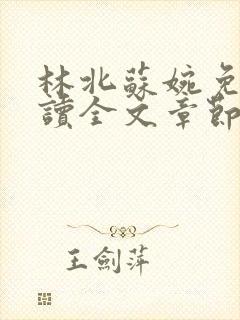 林北蘇婉免
讀全文章節
王劍萍